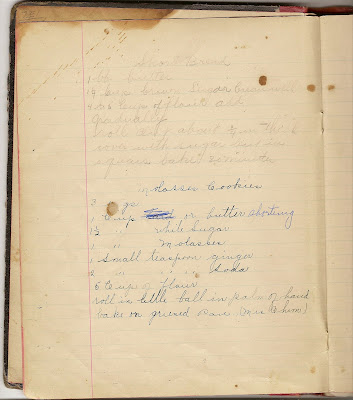 Short Bread
1 lb butter
1 Cup brown Sugar Cream well
4 Cups of flour add
gradually
roll out about in thick
cover with sugar cut in
squares bake minutes
Molasses Cookies
2 gs
1 Cup or butter shorting
1½ " white Sugar
1 " Molasses
1 Small teaspoon ginger
2 " " " Soda
6 Cups of flour
roll in little ball in palm of hand
bake on griesed pan (Mrs )